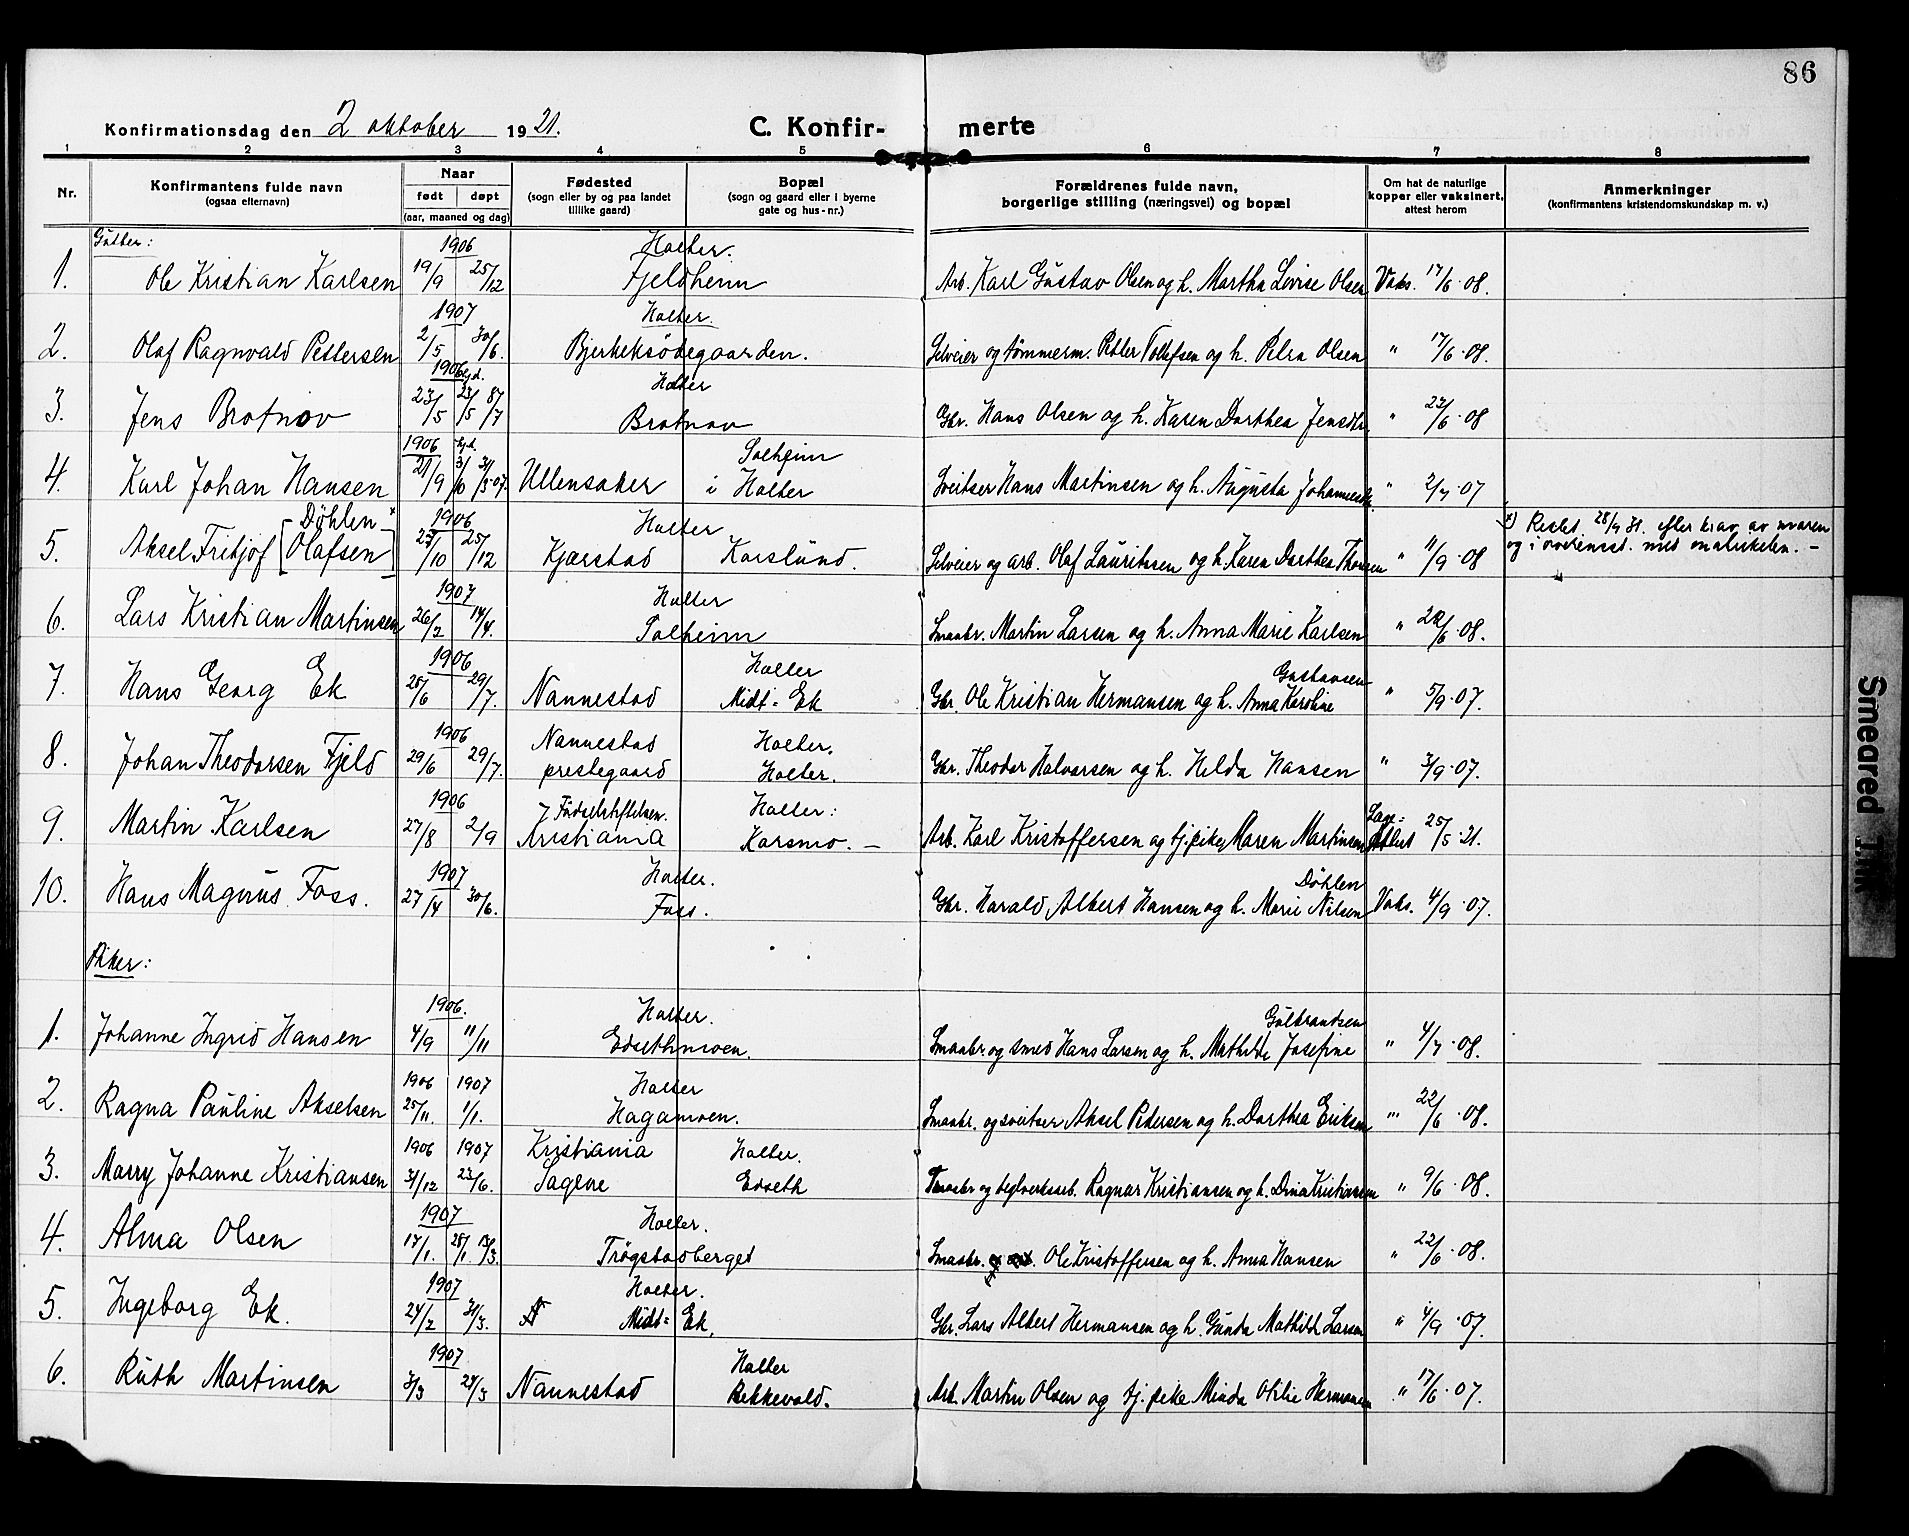 86
Konfirmationsdag den 2 oktober 1921.
C. Konfirmerte
1 2 3 4 5 6 7 8
Nr.
Konfirmantens fulde navn
(ogsaa efternavn)
Naar
født døpt
(aar, maaned og dag)
Fødested
(sogn eller by og paa landet
tillike gaard)
Bopæl
(sogn og gaard eller i byerne
gate og hus-nr.)
Forældrenes fulde navn,
borgerlige stilling (næringsvei) og bopæl
Om hat de naturlige
kopper eller vaksinert,
attest herom
Anmerkninger
(konfirmantens kristendomskundskap m. v.)
Gutter:
1906 Holter.
1. Ole Kristian Karlsen 19/9 25/12 Fjeldheim Arb. Karl Gustav Olsen og h. Martha Lovise Olsen Vaks. 17/6·08.
1907 Holter.
2. Olaf Ragnvald Pettersen 2/5 30/6. Bjerkeksødegaarden. Selveier og tømmerm. Petter Tollefsen og h. Petra Olsen " 17/6·08.
1906 hjd. Holter
3. Jens Brotnov 23/5 23/5 8/7 Brotnov Gbr. Hans Olsen og h. Karen Dorthea Jensdtr. " 22/6·08
1906 hjd. Solheim
4. Karl Johan Hansen 21/9 3/10 31/3·07. Ullensaker i Holter Sveitser Hans Martinsen og h. Augusta Johannesdtr. " 2/7·07
Døhlen x 1906 Holter x) Rettet 28/9 31. efter krav av moren
5. Aksel Fritjof [Olafsen] 23/10 25/12 Kjærstad Karslund. Selveier og arb. Olaf Lauritssen og h. Karen Dorthea Thoresen " 11/9·08 og i overensst. med matrikelen. –
1907 Holter
6. Lars Kristian Martinsen 26/2 14/4. Solheim Smaabr. Martin Larsen og h. Anna Marie Karlsen " 22/6·08.
1906 Holter Gustavsen
7. Hans Georg Ek 25/6 29/7. Nannestad Midt-Ek Gbr. Ole Kristian Hermansen og h. Anna Karoline " 5/9·07.
1906 Nannestad Holter.
8. Johan Theodorsen Fjeld 29/6 29/7. prestegaard Holter. Gbr. Theodor Halvorsen og h. Hilda Hansen " 3/9·07.
1906 Fødselsstiftelsen. Holter:
9. Martin Karlsen 27/8 2/9 Kristiania Karsmo. – Arb. Karl Kristoffersen og tj.pike Maren Martinsen Lægeattest 25/5·21.
1907 Holter. Døhlen
10. Hans Magnus Foss. 27/4 30/6. Foss. Gbr. Harald Albert Hansen og h. Marie Nilsen Vaks. 4/9·07.
Piker:
1906. Holter. Gulbrandsen
1. Johanne Ingrid Hansen 4/9 11/11 Edsethmoen. Smaabr. og smed Hans Larsen og h. Mathilde Josefine " 4/7·08.
1906 1907 Holter
2. Ragna Pauline Akselsen 25/11. 1/1. Hagamoen. Smaabr. og sveitser Aksel Pedersen og h. Dorthea Eriksen " 22/6·08.
1906 1907 Kristiania Holter.
3. Marry Johanne Kristiansen 31/12 23/6. Sagene Edseth Smaabr og teglverksarb. Ragnar Kristiansen og h. Dina Kristiansen " 9/6·08.
1907 Holter.
4. Alma Olsen 17/1. 25/1. 13/3. Trøgstadberget Smaabr. Ole Kristoffersen og h. Anna Hansen " 22/6·08.
1907 Holter.
5. Ingeborg Ek. 24/2 31/3. Midt-Ek. Gbr. Lars Albert Hermansen og h. Gunda Mathilde Larsen " 4/9·07.
1907 Holter
6. Ruth Martinsen 3/3 24/3 Nannestad Bekkevold. Arb. Martin Olsen og tj.pike Minda Otilie Hermansen " 17/6·07.
Smeared Ink